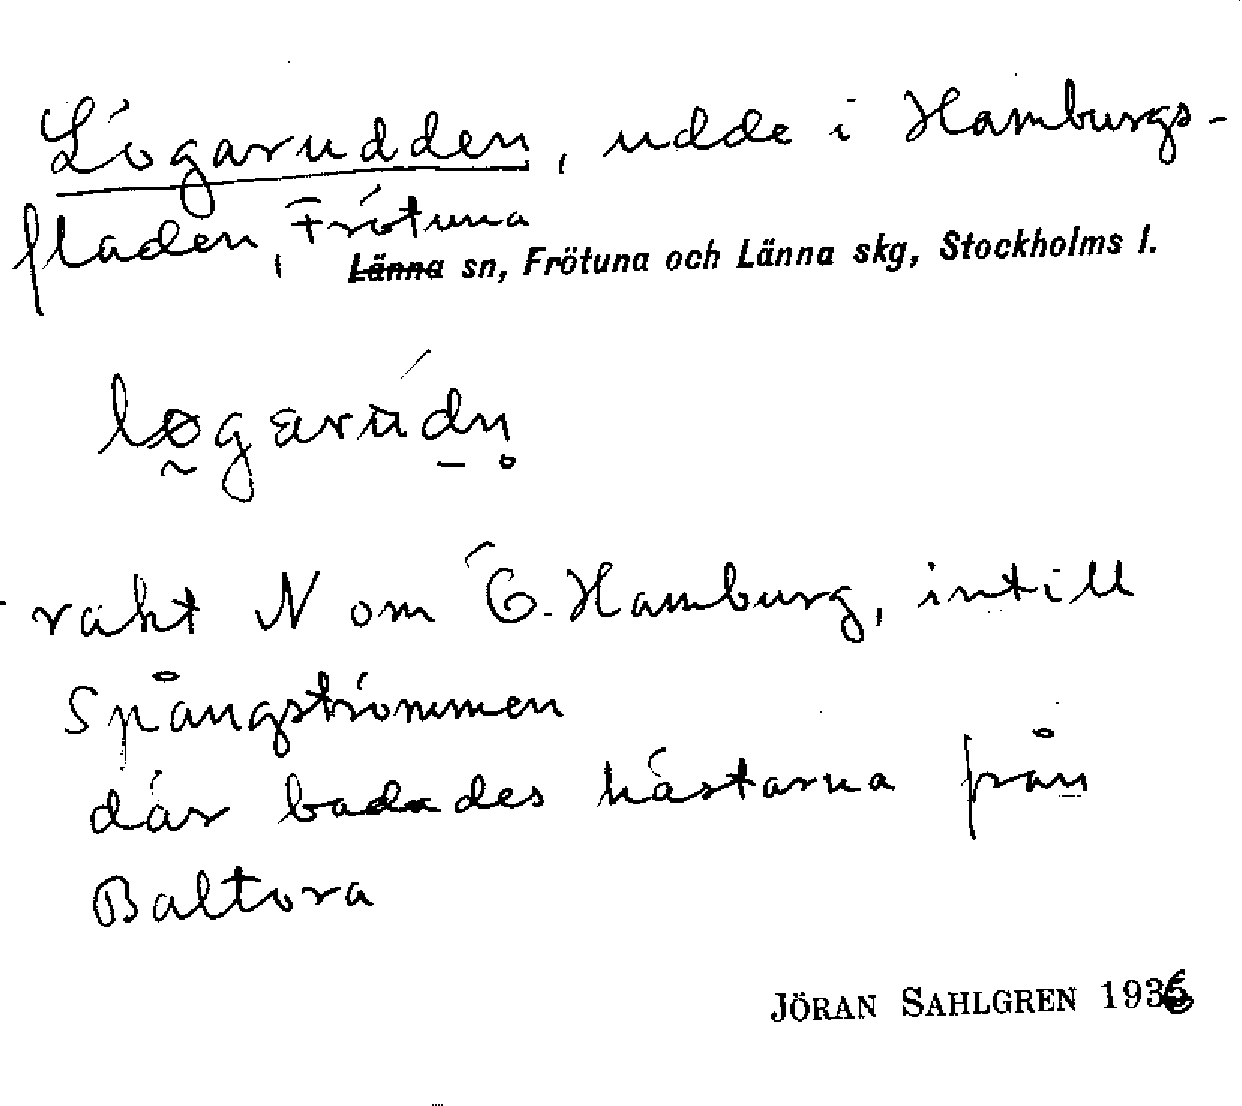 Lögarudden, udde i Hamburgs-
fladen, Frötuna
Länna sn, Frötuna och Länna skg, Stockholms l.
løgarúdn̥
rakt N om Ö. Hamburg, intill
Spångströmmen
där badades hästarna från
Baltora
JÖRAN SAHLGREN 1936